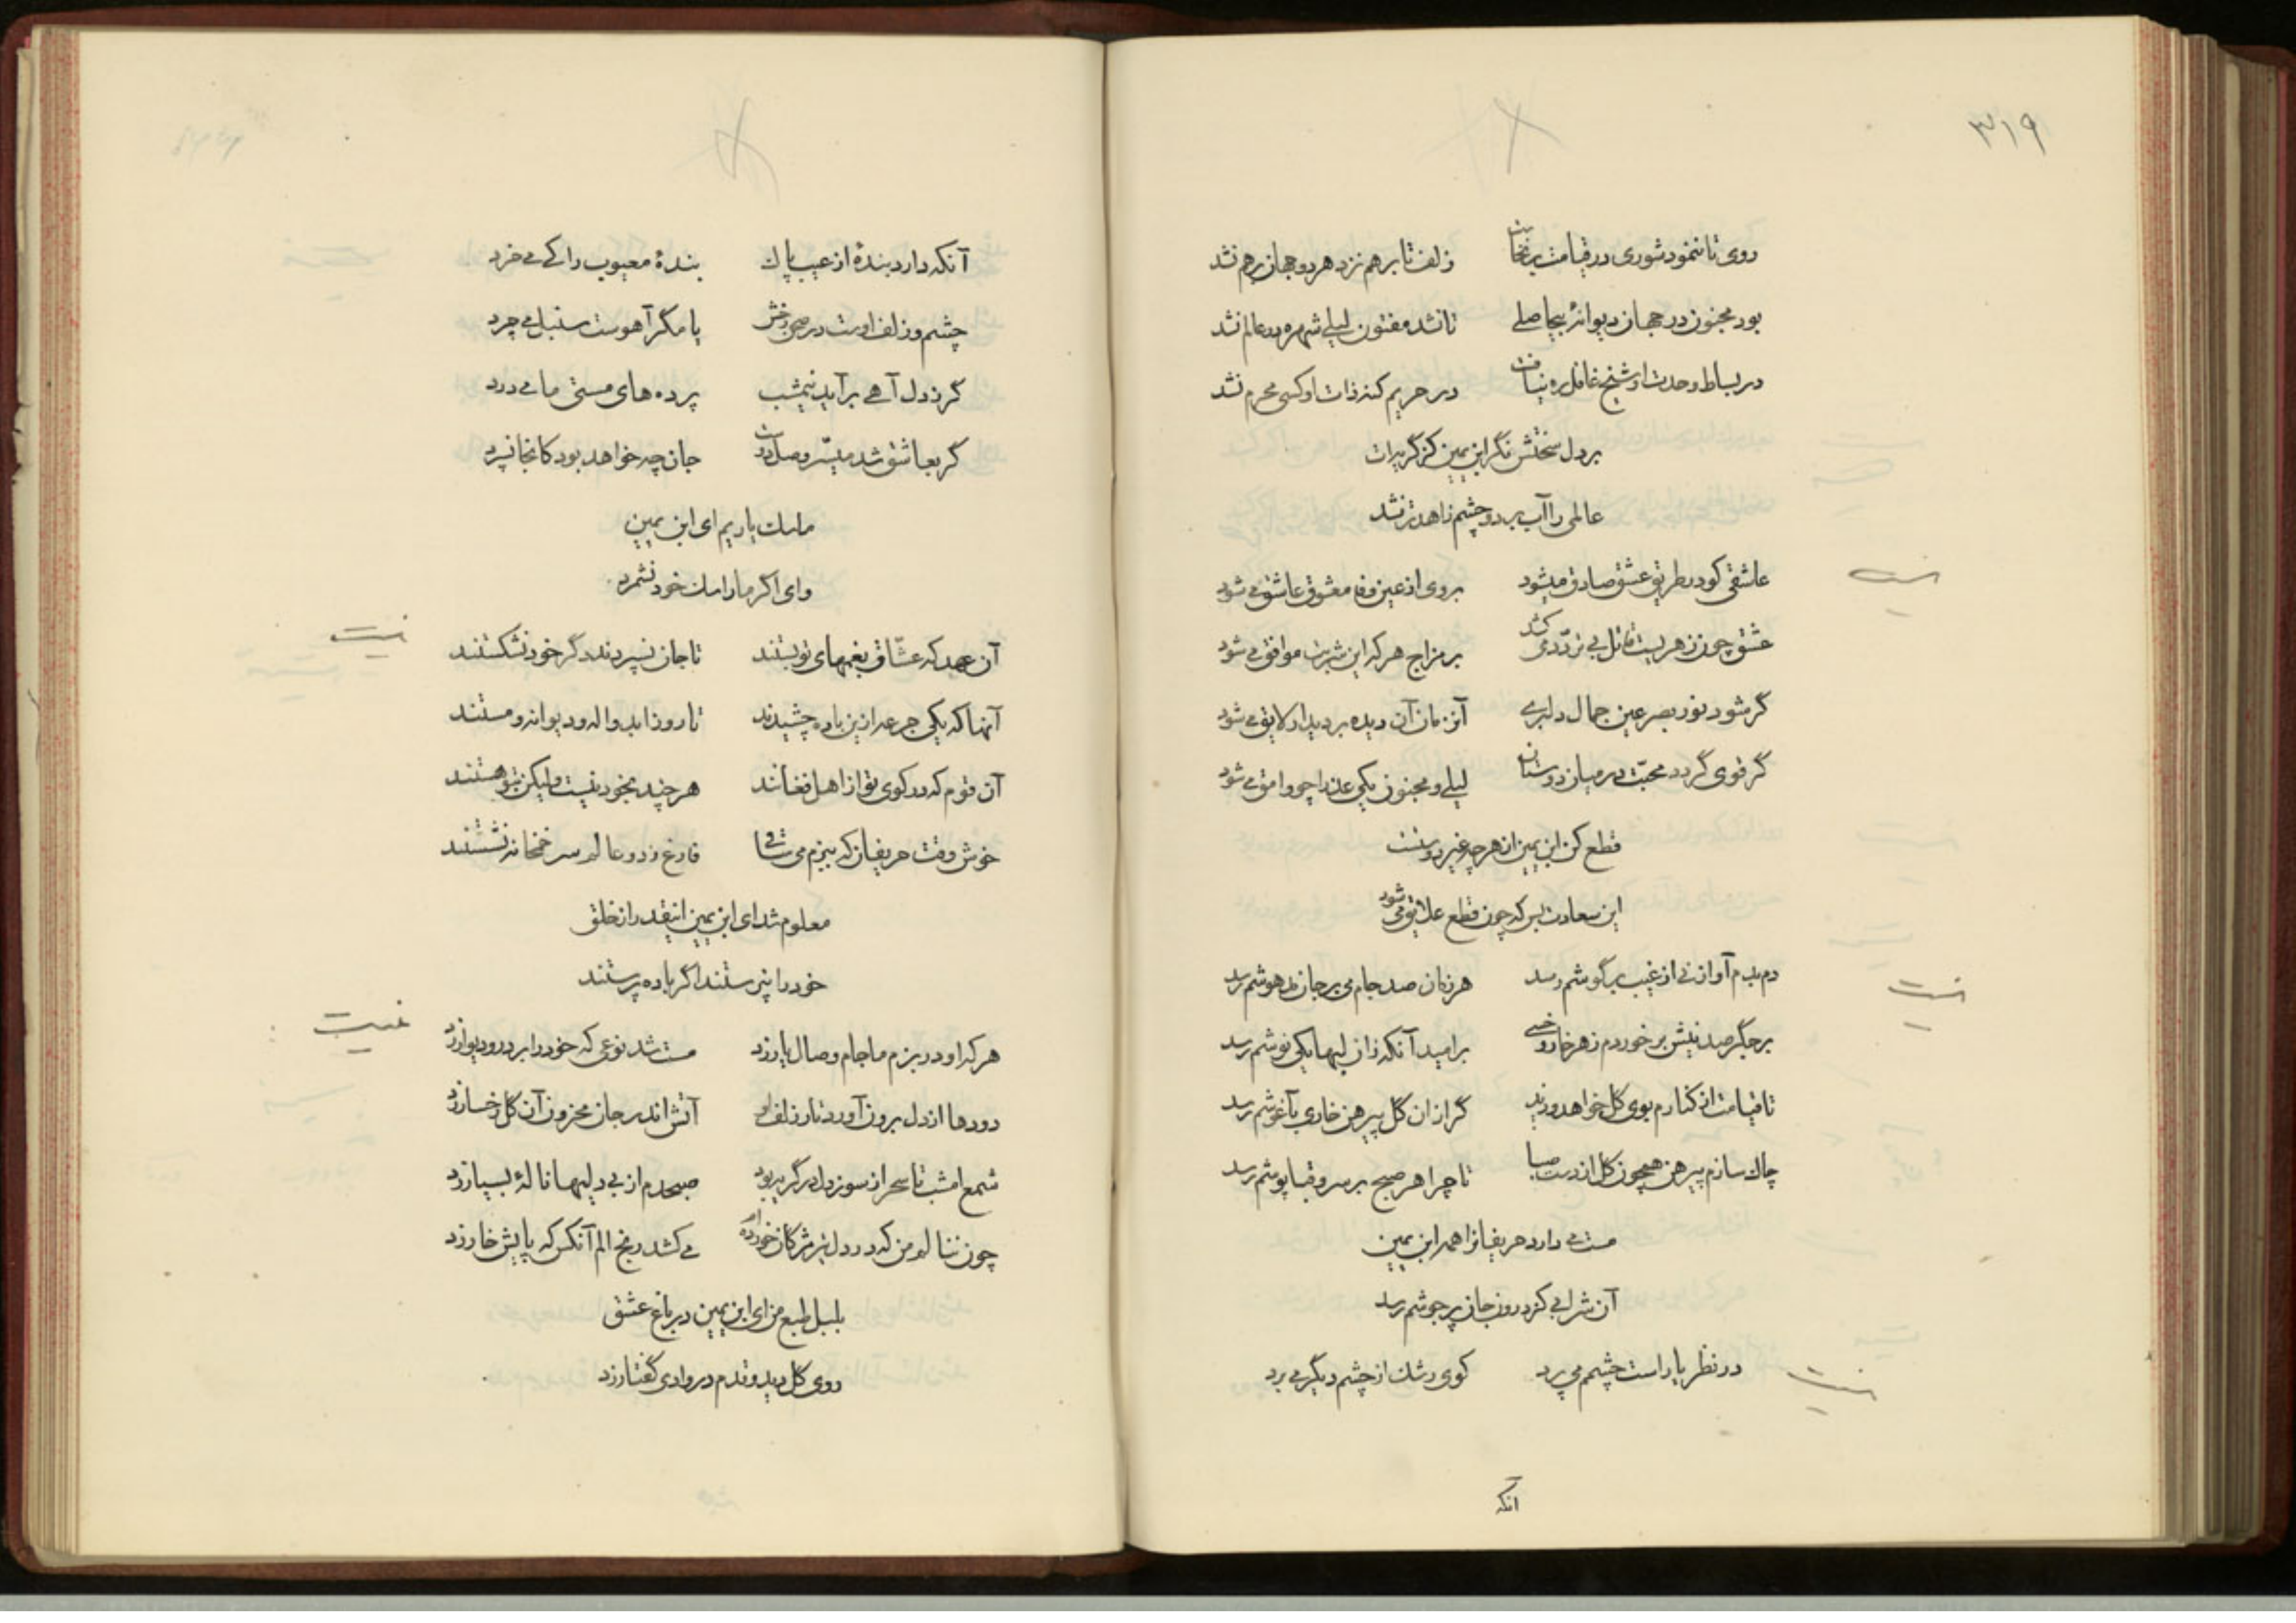 ۳۱۹
روی تا ننمود شوری در قیامت برنخاست زلف تا برهم نزد هر دو جهان برهم نشد
بود مجنون در جهان دیوانهٔ بیحاصلی تا نشد مفتون لیلی شهرهٔ عالم نشد
در بساط وحدت او شیخ غافل ره نیافت در حریم کنه ذات او کسی محرم نشد
بر دل سختش نگر ابن یمین کز گریه‌ات
عالمی را آب برد و چشم زاهد تر نشد
عاشقی کو در طریق عشق صادق میشود بروی از عین وفا معشوق عاشق می شود
عشق چون زهریست قاتل بی تردّد می کشد بر مزاج هر که این شربت موافق می شود
گر شود نور بصر عین جمال دلبری آن زمان آن دیده بر دیدار لایق می شود
گر قوی گردد محبّت در میان دوستان لیلی و مجنون یکی عذرا چو وامق می شود
قطع کن ابن یمین از هر چه غیر دوست
این سعادت بس که چون قطع علایق می شود
دم بدم آواز نی از غیب بر گوشم رسد هر زمان صد جام می بر جان مدهوشم رسد
بر جگر صد نیش بر خوردم زهر خار و خسی بر امید آنکه زان لبها یکی نوشم رسد
تا قیامت از کنارم بوی گل خواهد وزید گر از ان گل پیرهن خاری بآغوشم رسد
چاك سازم پیرهن همچون گل از دست صبا تا چرا هر صبح بر سرو قباپوشم رسد
مست می دارد حریفانرا همه ابن یمین
آن شرابی کز درون جان پرجوشم رسد
در نظر یار است چشمم می پرد کوی رشك از چشم دیگر می برد
آنکه
آنکه دارد بندهٔ از عیب پاك بندهٔ معیوب را کی می خرد
چشم و زلف اوست در صحن رخش یا مگر آهوست سنبل می چرد
گر ز دل آهی برآید نیمشب پرده های مستی ما می درد
گر بعاشق شد میسّر وصل دوست جان چه خواهد بود کانجا نسپرد
ما سك یاریم ای ابن یمین
وای اگر ما را سك خود نشمرد
آن عهد که عشّاق بغمهای تو بستند تا جان نسپردند دگر خود نشکستند
آنها که یکی جرعه ازین باده چشیدند تا روز ابد واله و دیوانه و مستند
آن قوم که در کوی تو از اهل فغانند هر چند بخود نیست ولیکن بتو هستند
خوش وقت حریفان که ببزم می ساقی فارغ ز دو عالم سر خمخانه نشستند
معلوم شد ای ابن یمین اینقدر از خلق
خود را نپرستند اگر باده پرستند
هر که او در بزم ما جام وصال یار زد مست شد نوعی که خود را بر در و دیوار زد
دودها از دل برون آورد تار زلف او آتش اندر جان محزون آن گل رخسار زد
شمع امشب تا سحر از سوز دل در گریه بود صبحدم از بیدلیها نالهٔ بسیار زد
چون ننالم من که در دل تیر مژگان خورده ام می کشد رنج الم آنکس که پایش خار زد
بلبل طبع من ای ابن یمین در باغ عشق
روی گل دید و قدم در وادی گفتار زد